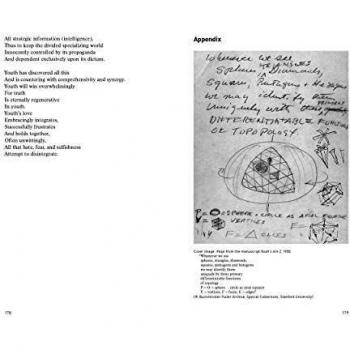 All strategic information (intelligence),
Thus to keep the divided specializing world
Innocently controlled by its propaganda
And dependent exclusively upon its dictum.
Youth has discovered all this
And is countering with comprehensivity and synergy.
Youth will win overwhelmingly
For truth
Is eternally regenerative
In youth.
Youth's love
Embracingly integrates,
Successfully frustrates
And holds together,
Often unwittingly,
All that hate, fear, and selfishness
Attempt to disintegrate.
178
Appendix
Whenever we see
TRIANGLES
Spheres, Diamonds,
Squares, Pentagons + Hexagons
we may identify them
Uniquely with
DIFFERENTIATABLE FUNCTIONS
OF TOPOLOGY.
P = O = SPHERE CIRCLE AS AXIAL FORCE
VERTICES
F = △ = FACES
Cover image: Page from the manuscript
"Whenever we see
spheres, triangles, diamonds,
squares, pentagons and hexagons
we may identify them
uniquely by these primary
differentiable functions
of topology
P = O = sphere circle as axial squares
V = vertices, F = faces, E = edges"
(R. Buckminster Fuller Archive, Special Collections, Stanford University)
179